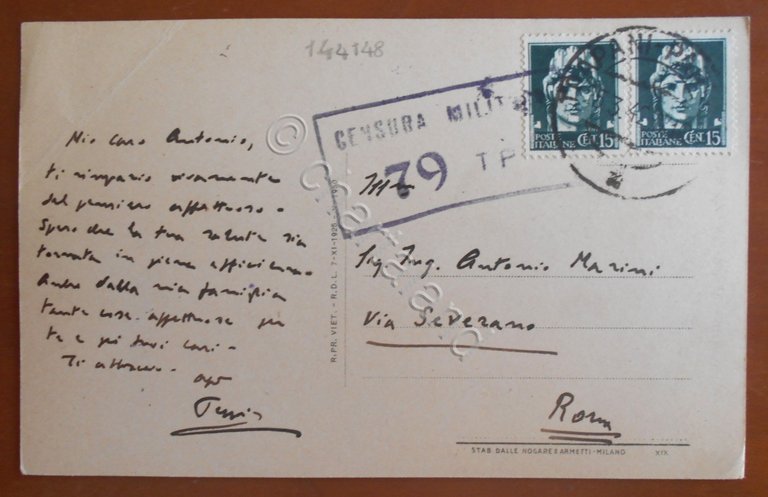 144148
CENSURA MILIT
79 TP
TRAPANI
POSTE ITALIANE CENT 15
POSTE ITALIANE CENT 15
Mio caro Antonio,
ti ringrazio vivamente
del pensiero affettuoso -
Spero che la tua salute sia
tornata in piena efficienza
Anche dalla mia famiglia
tante cose affettuose per
te e pei tuoi cari -
Ti abbraccio -
R.PR. VIET. - R.D.L. 7-XI-1925 - N. 1950
Sig. Ing. Antonio Marini
Via Severano
Roma
STAB. DALLE NOGARE E ARMETTI - MILANO XIX
© Cartanto